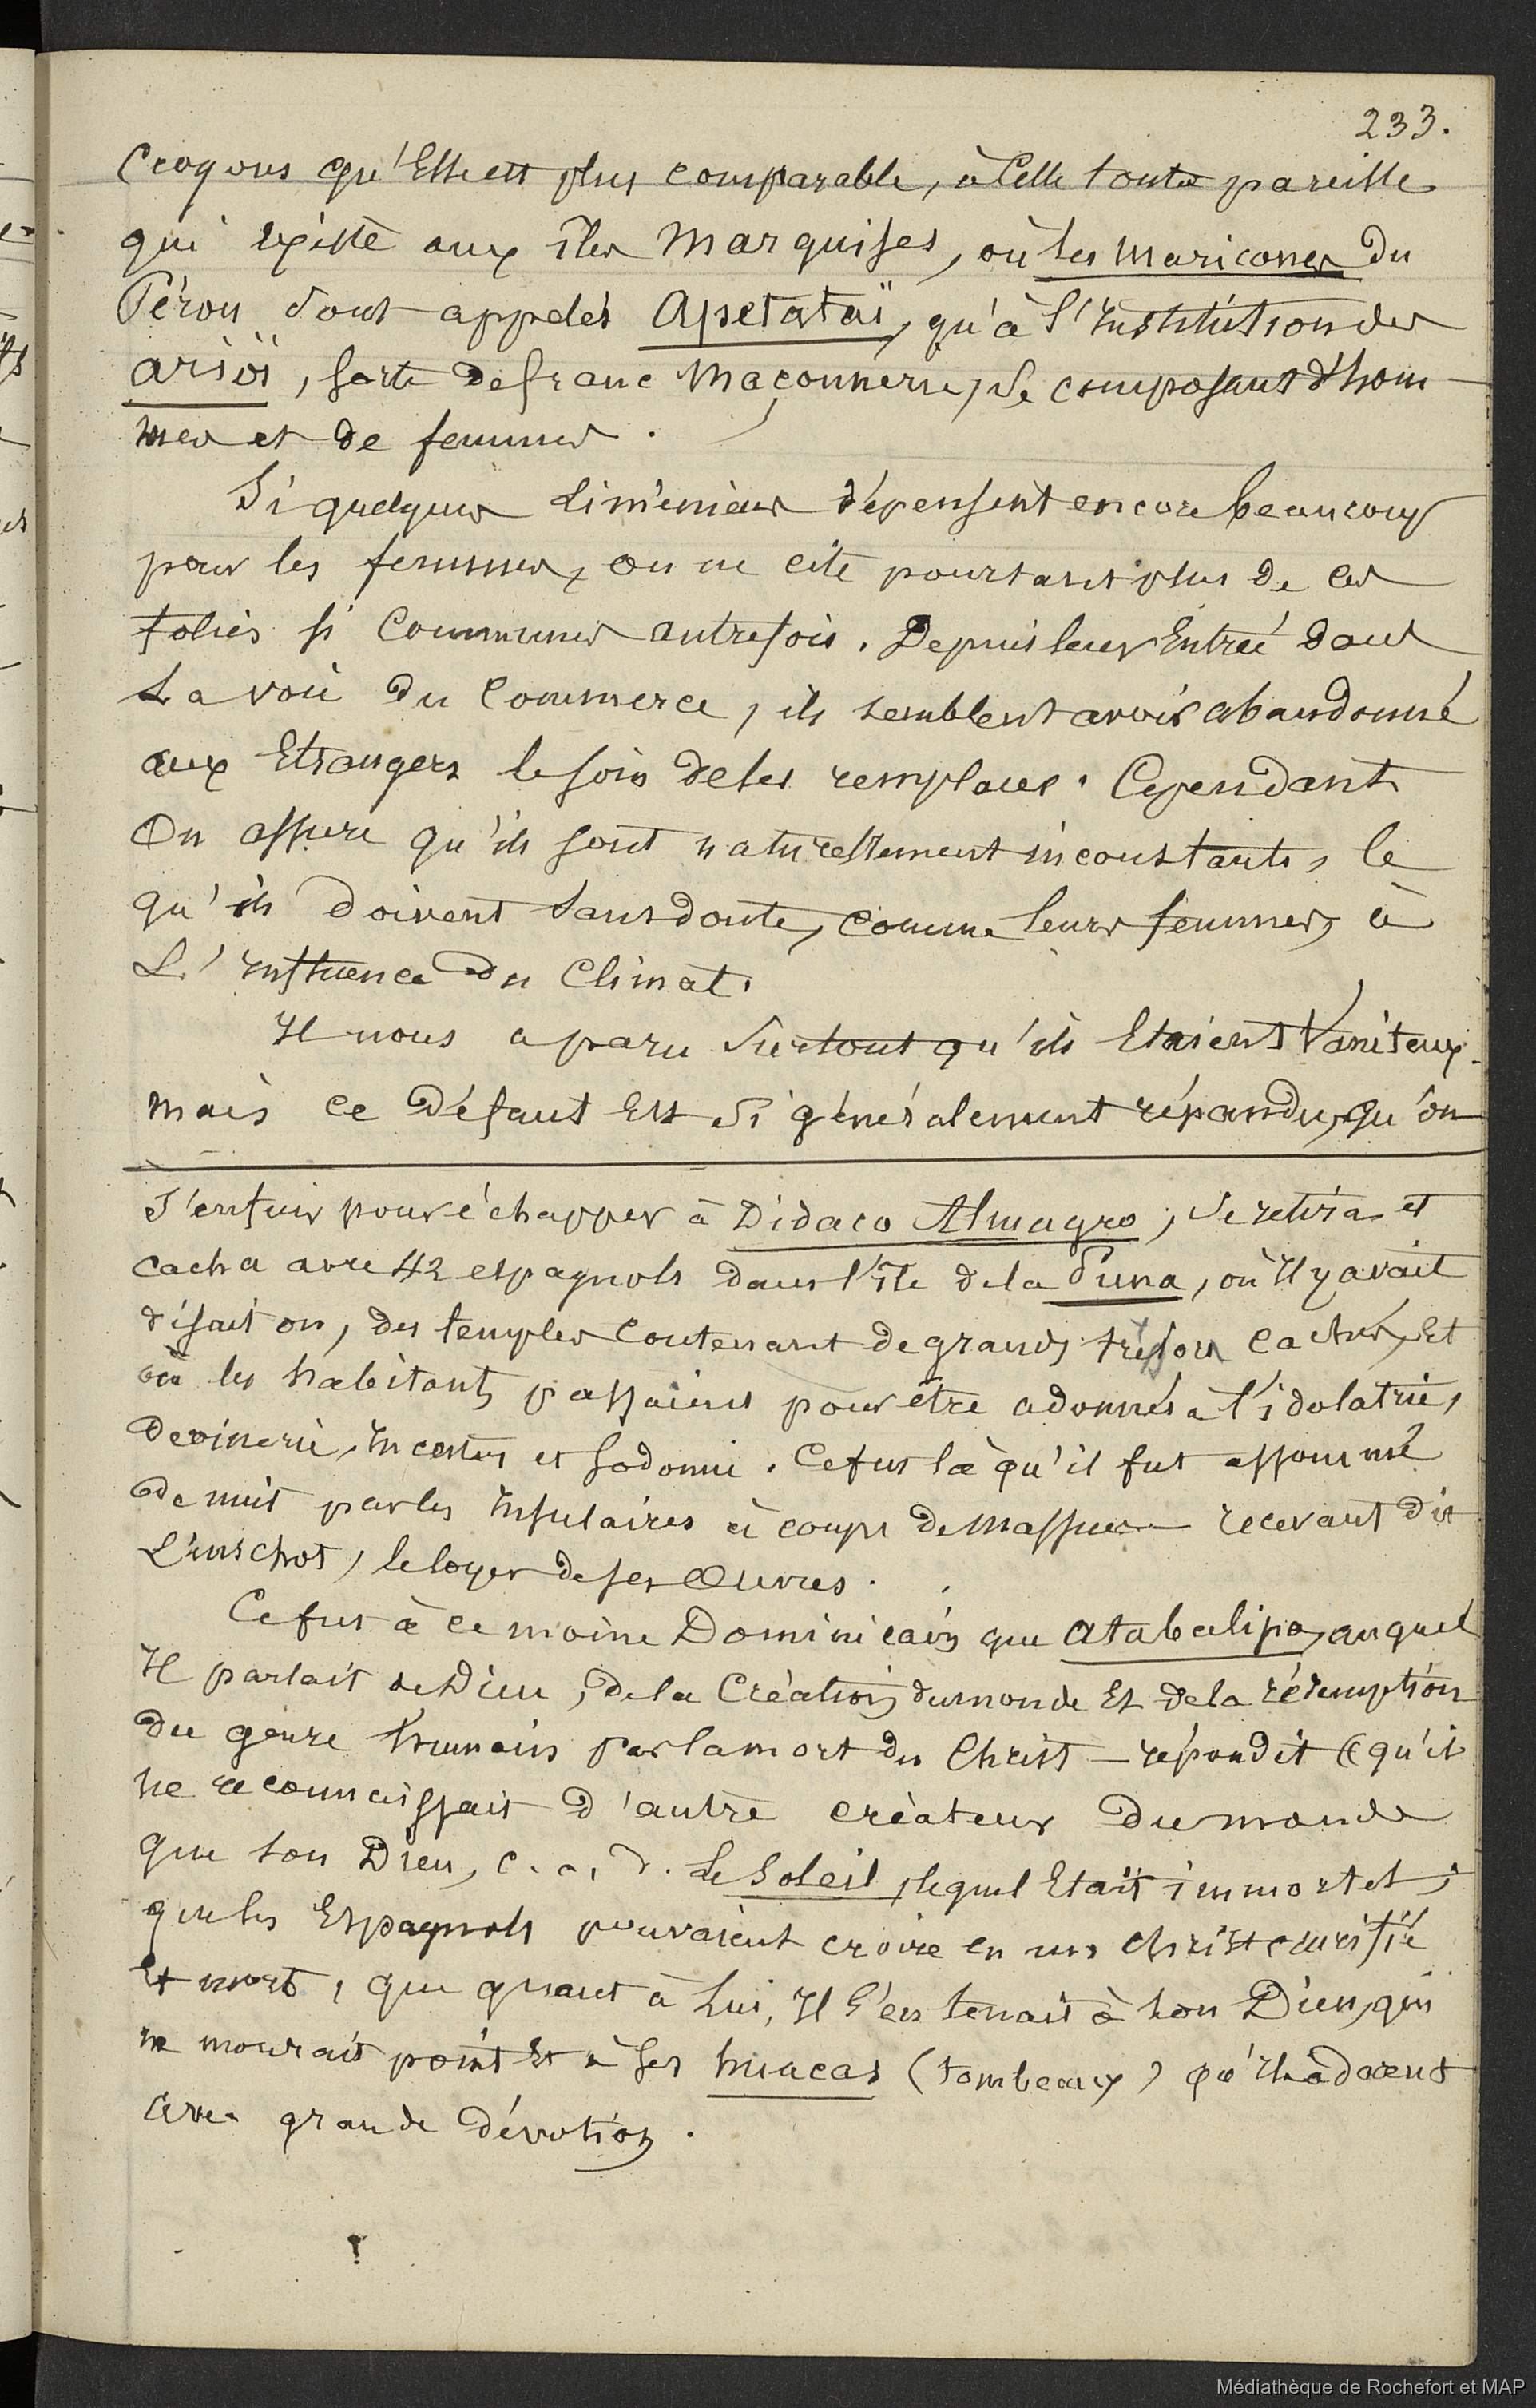 233.
Croyons qu'Elle est plus comparable, à Celle toute pareille
qui existe aux îles Marquises, où les maricones du
Pérou sont appelés Apetataï, qu'à l'Institution des
arioï, sorte de franc Maçonnerie, se composant d'hom-
mes et de femmes.
Si quelques Liméniens dépensent encore beaucoup
pour les femmes, on ne cite pourtant plus de ces
folies si Communes autrefois. Depuis leur Entrée dans
La voie du Commerce, ils semblent avoir abandonné
aux Etrangers le soin de les remplacer. Cependant
On assure qu'ils sont naturellement inconstants, ce
qu'ils doivent sans doute, comme leurs femmes, à
L'Influence du Climat.
Il nous a paru surtout qu'ils Etaient Vaniteux.
mais ce défaut Est si généralement répandu, qu'on
S'enfuir pour échapper à Didaco Almagro, se retira et
cacha avec 42 espagnols dans l'île de la Puna, où Il y avait
disait on, des temples Contenant de grands trésors cachés, Et
où les habitants passaient pour être adonnés à l'idolatrie,
Devinerie, Incestes et Sodomie. Ce fut là qu'il fut assommé
De nuit par les Insulaires à coups de Massues — recevant dit
Linschot, le loyer de ses Œuvres.
Ce fut à ce moine Dominicain que Atabalipa, auquel
Il parlait de Dieu, de la Création du monde Et de la rédemption
du genre humain par la mort du Christ — répondit « qu'il
ne reconnaissait d'autre créateur du monde
que son Dieu, c. a. d. Le Soleil, lequel Etait immortel;
que les Espagnols pouvaient croire en un Christ crucifié
Et mort, que quant à Lui, Il s'en tenait à son Dieu, qui
ne mourait point Et à ses huacas (tombeaux) qu'Ils adoraient
avec grande dévotion.
Médiathèque de Rochefort et MAP